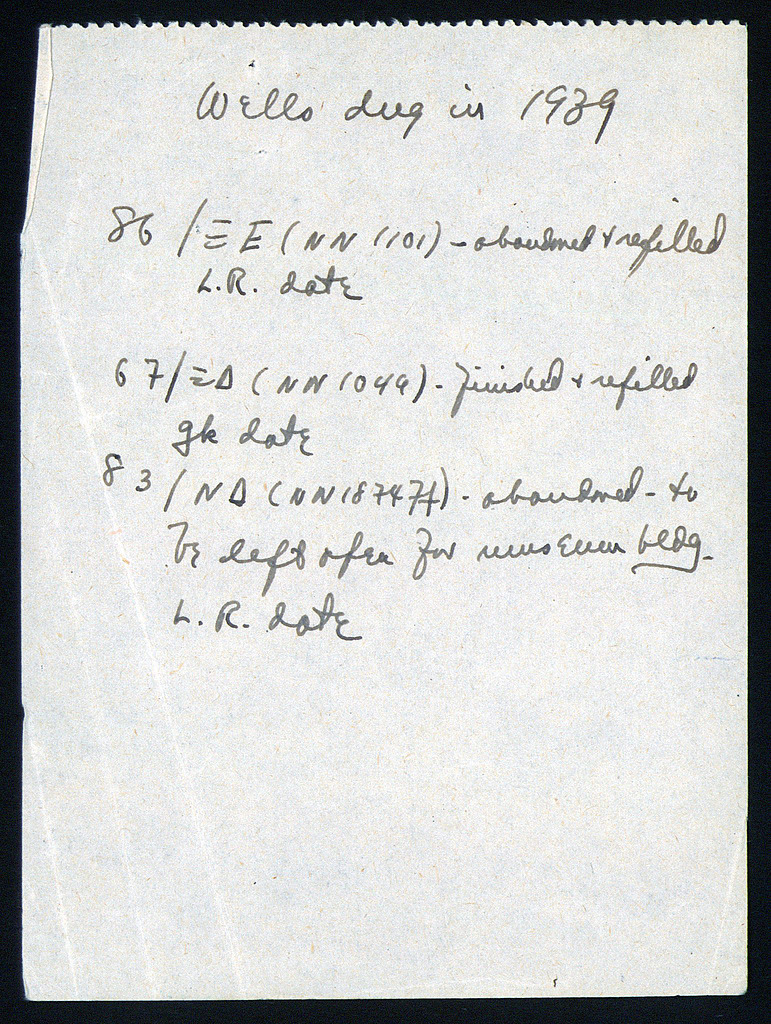 Wells dug in 1939
86 / Ξ Ε (NN 1101) - abandoned & refilled
L.R. date
67 / ΞΔ (NN 1049) - finished & refilled
gk date
83 / ΝΔ (NN 18747f) - abandoned - to
be left open for museum bldg.
L.R. date